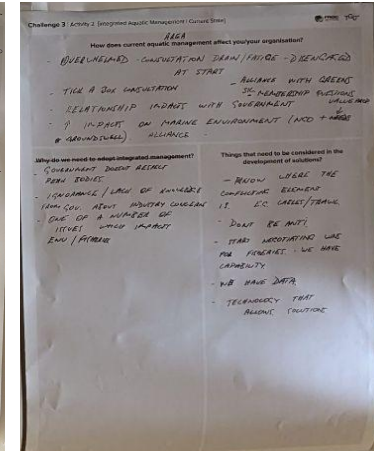 Challenge 3 | Activity 2 [Integrated Aquatic Management | Current State]
AREA
How does current aquatic management affect you/your organisation?
- OVERWHELMED - CONSULTATION DRAIN/FATIGE - DISENGAGED
AT START
- ALLIANCE WITH GREENS
- TICK A BOX CONSULTATION
- MEMBERSHIP
- RELATIONSHIP IMPACTS WITH GOVERNMENT
- ↑ IMPACTS ON MARINE ENVIRONMENT (NGO +
GROUNDSWELL) ALLIANCE.
Why do we need to adopt integrated management?
- GOVERNMENT DOESNT RESPECT
PEAK BODIES.
- IGNORANCE / LACK OF KNOWLEDGE
FROM GOV. ABOUT INDUSTRY CONCERNS
- ONE OF A NUMBER OF
ISSUES WHICH IMPACTS
ENV / FISHERIES
Things that need to be considered in the
development of solutions?
- KNOW WHERE THE
CONFLICTING ELEMENT
IS
- DONT BE ANTI
- START NEGOTIATING
FOR FISHERIES. WE HAVE
CAPABILITY
- WE HAVE DATA,
- TECHNOLOGY THAT
ALLOWS SOLUTIONS